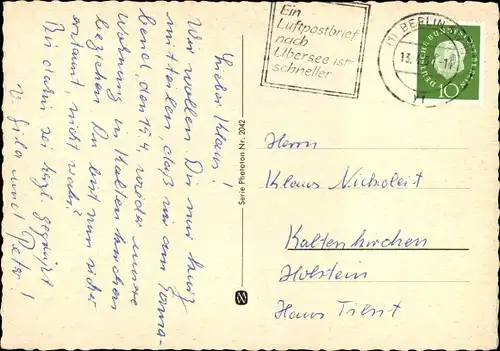 Lieber Klaus!
Wir wollen Dir nur kurz
mitteilen, daß wir am Sonna-
bend, den 15.4. wieder unsere
Wohnung in Kaltenkirchen
beziehen. Du bist nun sicher
erstaunt, nicht wahr?
Bis dahin sei herzl. gegrüßt
v. und Peter!
Serie Phototon Nr. 2042
Ein
Luftpostbrief
nach
Übersee ist
schneller
(1) BERLIN
13.
DEUTSCHE BUNDESPOST BERLIN
10
Herrn
Klaus Nicholeit
Kaltenkirchen
Holstein
Haus Tilsit